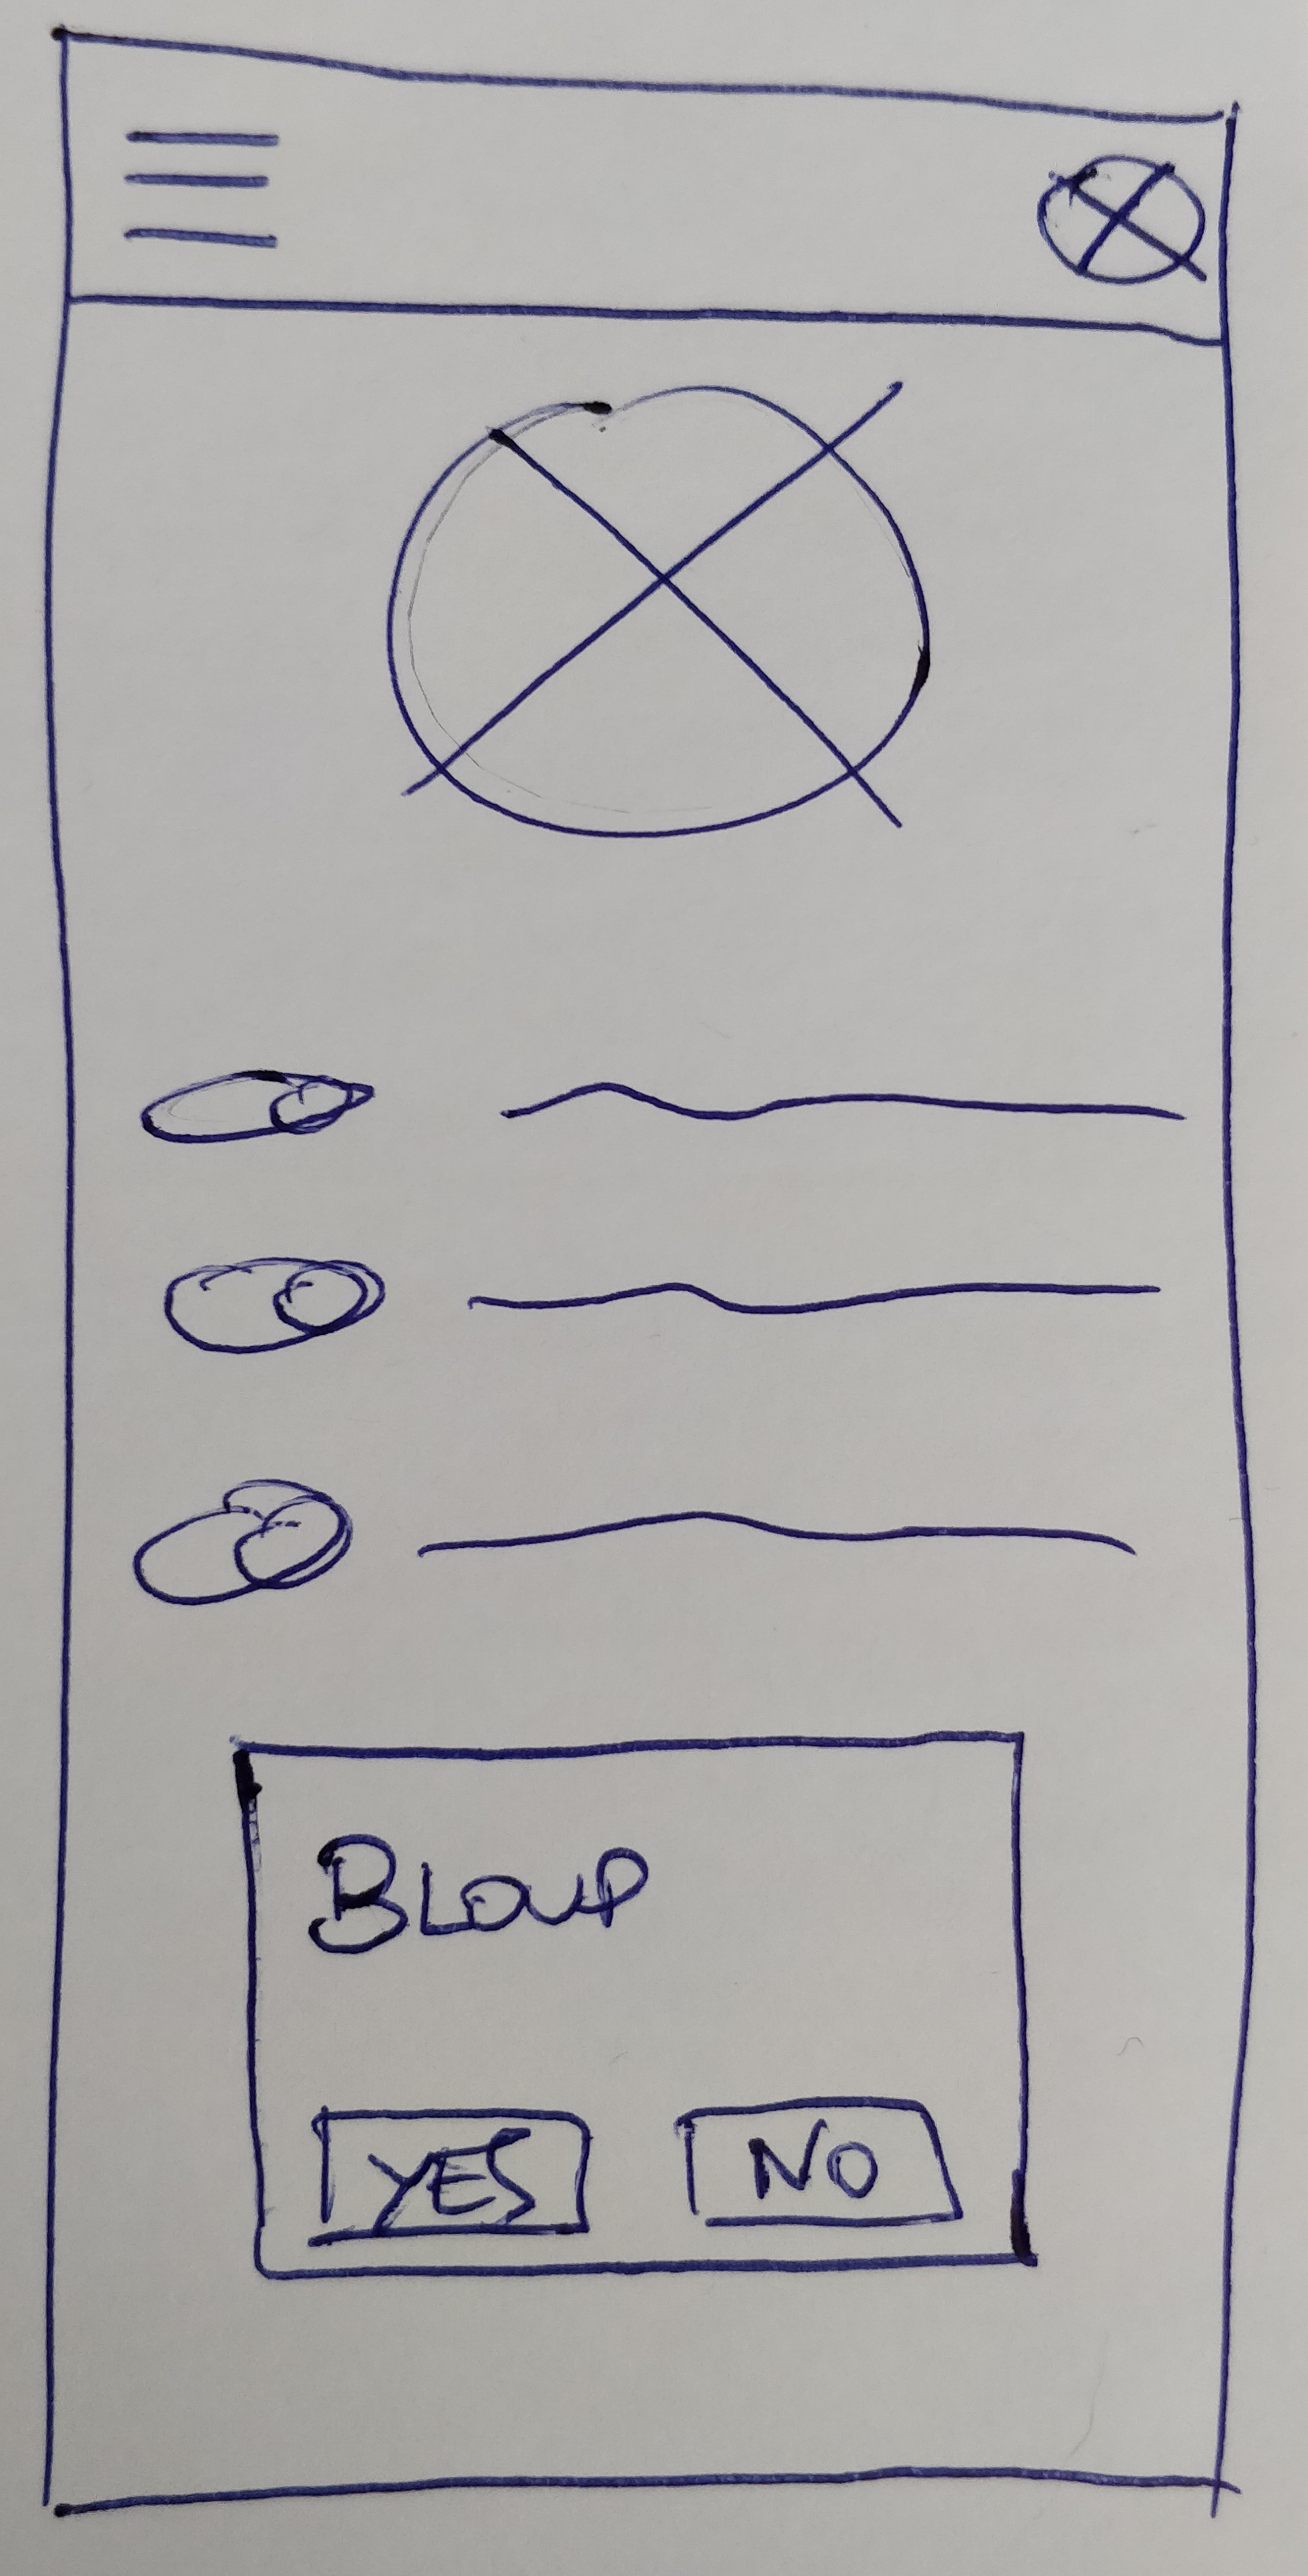 BLOUP
YES
NO